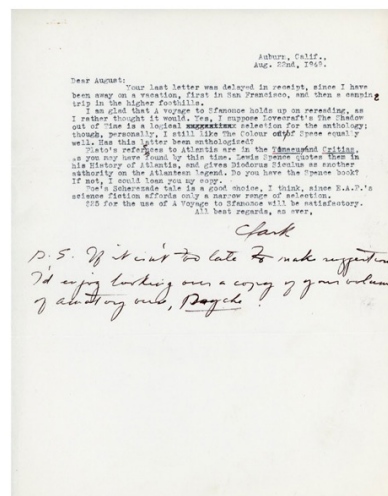 Auburn, Calif.,
Aug. 22nd, 1949.
Dear August:
Your last letter was delayed in receipt, since I have
been away on a vacation, first in San Francisco, and then a camping
trip in the higher foothills.
I am glad that A voyage to Sfanomoe holds up on rereading, as
I rather thought it would. Yes, I suppose Lovecraft's The Shadow
out of Time is a logical selection for the anthology;
though, personally, I still like The Colour out of Space equally
well. Has this latter been anthologized?
Plato's references to Atlantis are in the Timaeus and Critias,
as you may have found by this time. Lewis Spence quotes them in
his History of Atlantis, and gives Diodorus Siculus as another
authority on the Atlantean legend. Do you have the Spence book?
If not, I could loan you my copy.
Poe's Scherezade tale is a good choice, I think, since E.A.P.'s
science fiction affords only a narrow range of selection.
$25 for the use of A Voyage to Sfanomoe will be satisfactory.
All best regards, as ever,
Clark
P.S. If it isn't too late to make suggestions
I'd enjoy looking over a copy of your volume
of amatory odes, Psyche.